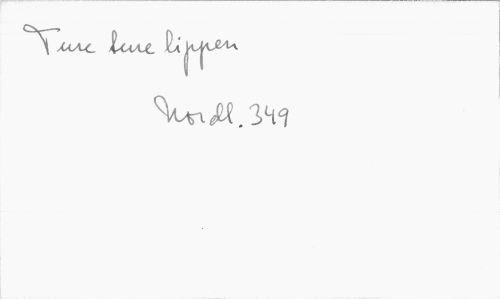 Ture ture lippen
Nordl. 349